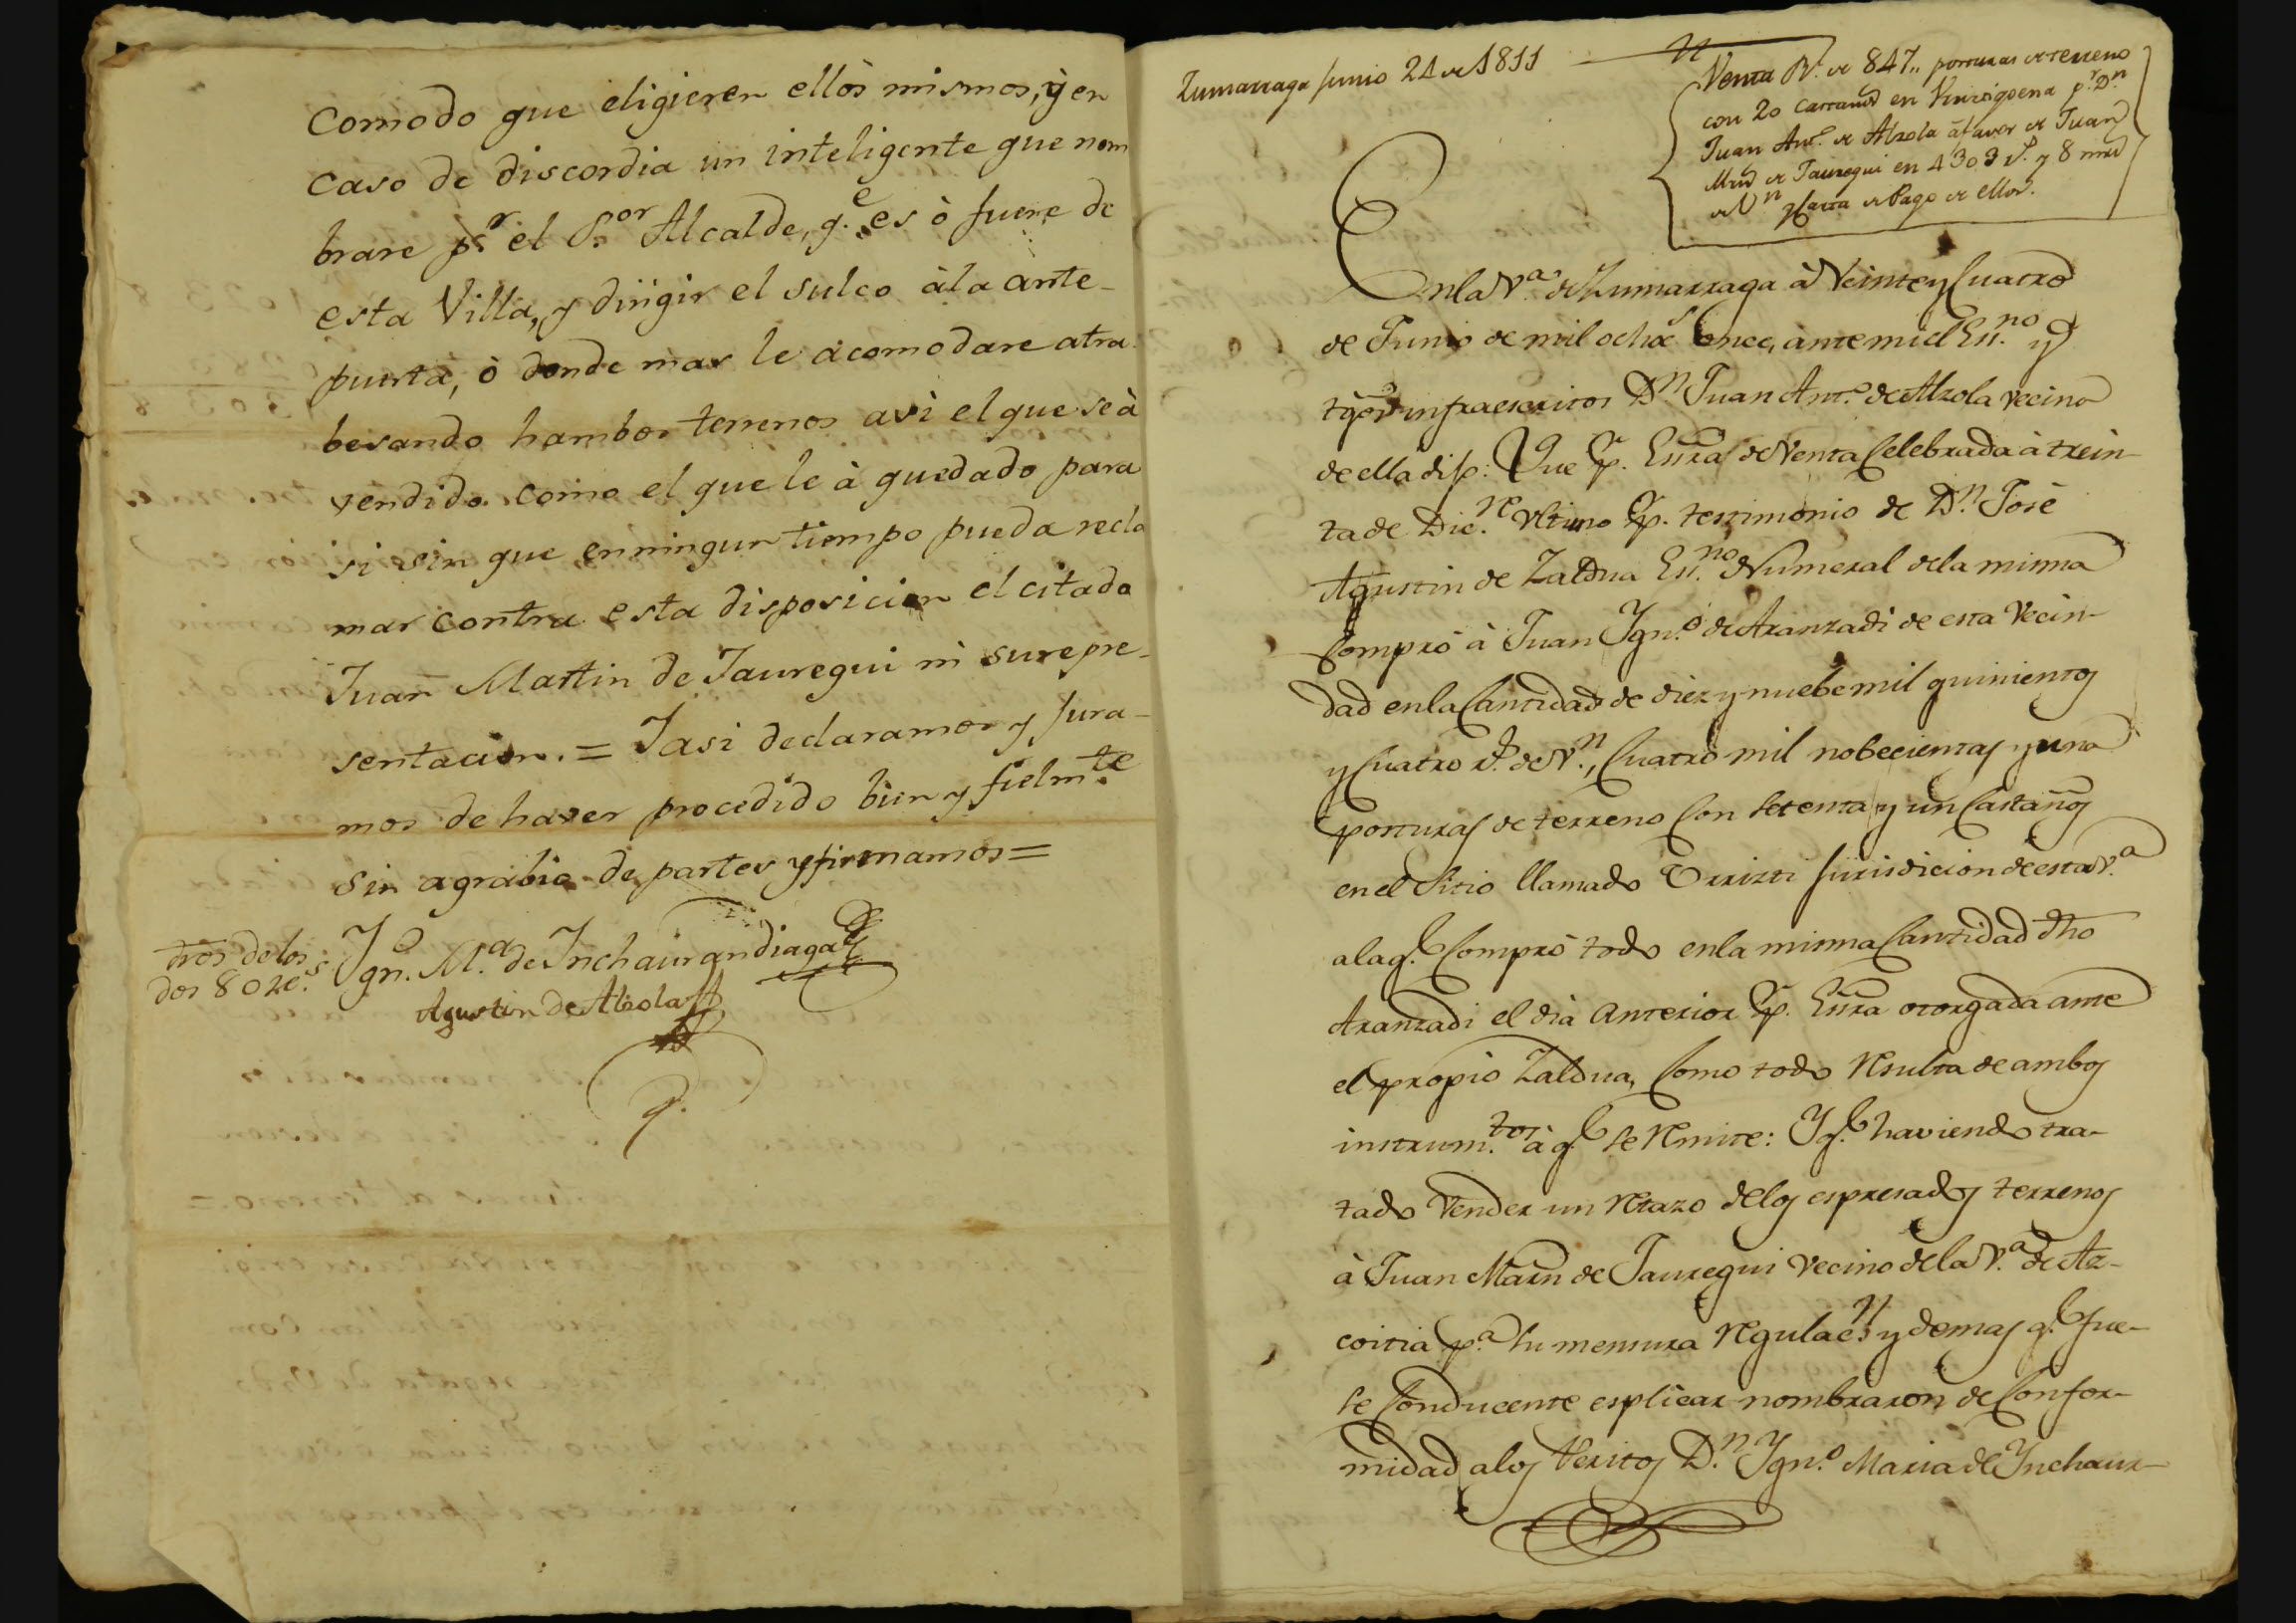 Comodo que eligieren ellos mismos, y en
caso de discordia un inteligente que nom
brare p.r el S.or Alcalde, q.e es ò fuere de
esta Villa, y dirigir el sulco àla ante-
puerta, ò donde mas le acomodare atra
besando hambos terrenos asi el que se à
vendido como el que le à quedado para
si sin que en ningun tiempo pueda recla
mar contra esta disposicion el citado
Juan Martin de Jauregui ni su repre-
sentacion. = Y asi declaramos y jura-
mos de haver procedido bien y fielm.te
sin agrabio de partes y firmamos =
dros de los
dos 80 rs.
Ygn.o M.a de Inchaurandiaga
Agustin de Alzola
Zumarraga Junio 24 de 1811
Venta R.l de 847,, posturas de terreno
con 20 castaños en p.r D.n
Juan Ant.o de Alzola à favor de Juan
Mrn de Jauregui en 4303 r.s y 8 mrs
de V.n y Carta de Pago de ellos.
En la V.a de Zumarraga à Veinte y Cuatro
de Junio de mil ochoc.s once, ante mi el Es.no y
tgos infraescritos D.n Juan Ant.o de Alzola vecino
de ella dijo: Que p.r Essra de Venta Celebrada à trein-
ta de Dic.re Ultimo p.r testimonio de D.n José
Agustin de Zaldua Es.no Numeral de la misma
Compró à Juan Ygn.o de Aranzadi de esta Vecin-
dad en la Cantidad de diez y nuebe mil quinientos
y Cuatro r.s de V.n, Cuatro mil nobecientas y una
posturas de terreno Con Setenta y un Castaños
en el Sitio llamado Orrizti Jurisdicion de esta V.a
a la q.e Compró todo en la misma Cantidad dho
Aranzadi el dia anterior p.r Essra otorgada ante
el propio Zaldua, Como todo resulta de ambos
instrum.tos à q.e se remite: Y q.e haviendo tra-
tado Vender un retazo de los espresados terrenos
à Juan Marn de Jauregui vecino de la V.a de Az-
coitia p.a su mensura regulac.n y demas q.e fue-
se Conducente esplicar nombraron de Confor-
midad a los Peritos D.n Ygn.o Maria de Ynchaur-